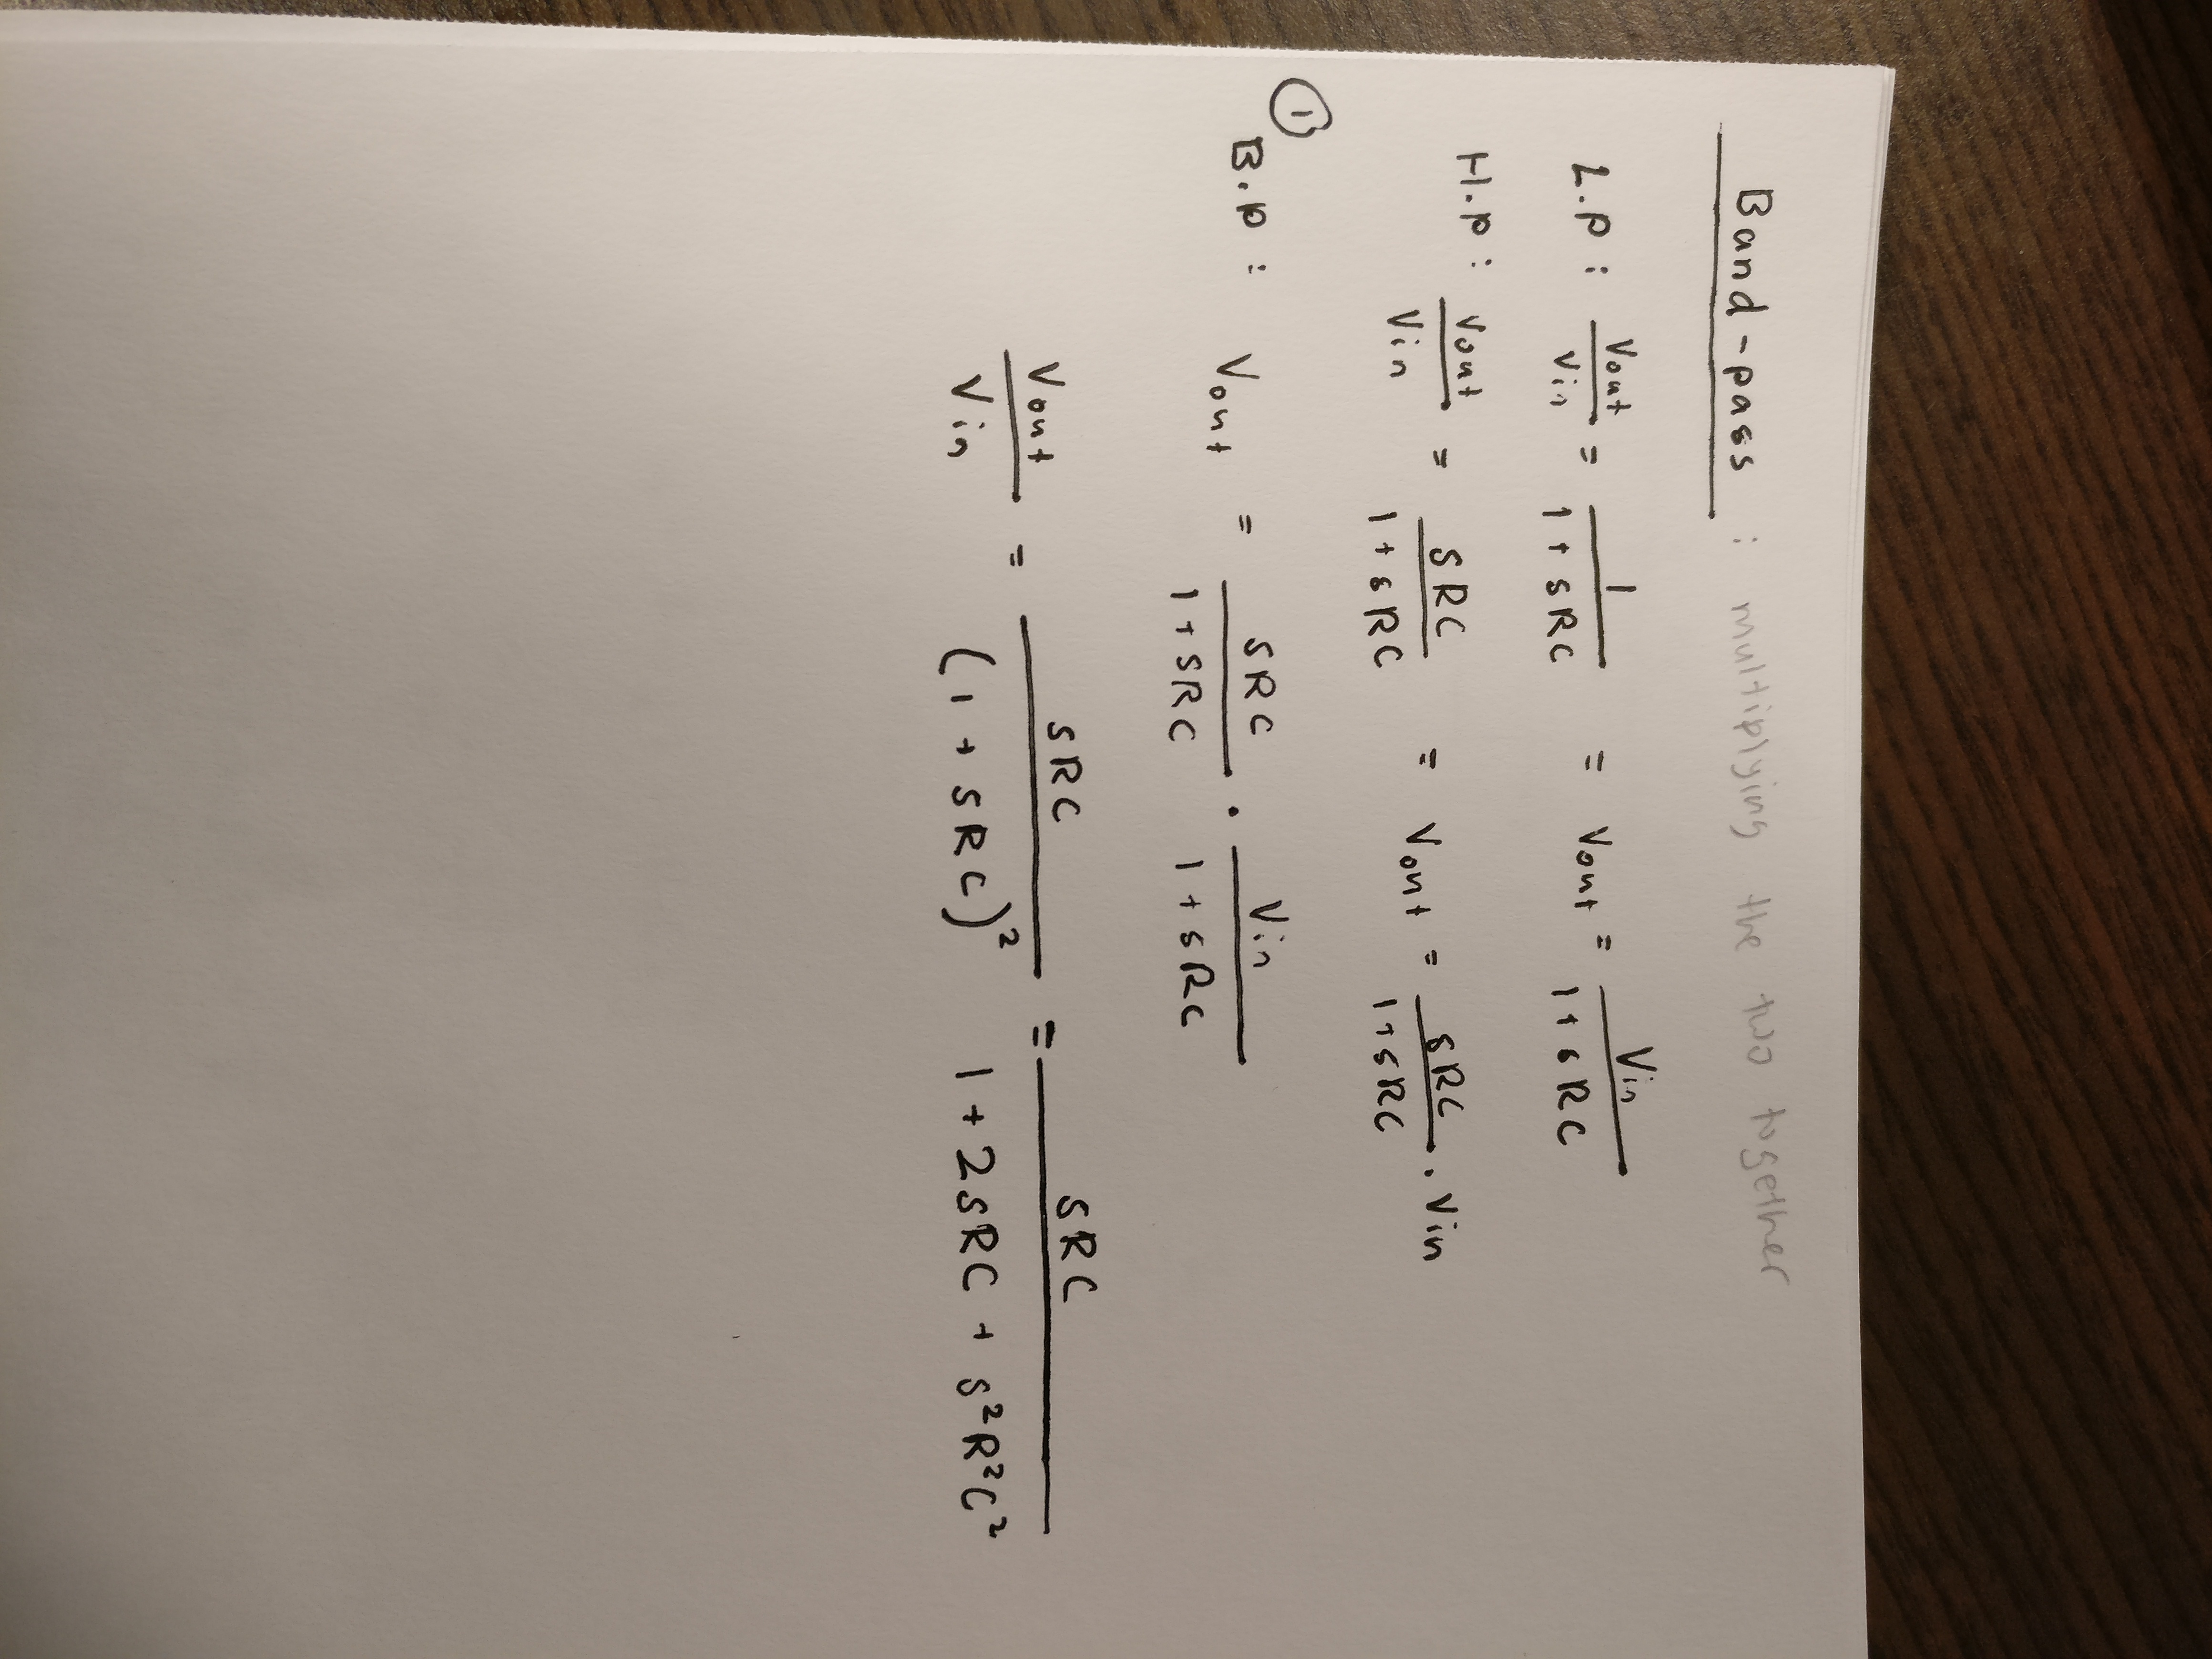 Band-pass : multiplying the two together
L.P : Vout/Vin = 1/(1 + sRC) = Vout = Vin/(1 + sRC)
H.P : Vout/Vin = sRC/(1 + sRC) = Vout = sRC/(1 + sRC) . Vin
①
B.P : Vout = sRC/(1 + sRC) . Vin/(1 + sRC)
Vout/Vin = sRC/(1 + sRC)² = sRC/(1 + 2sRC + s²R²C²)